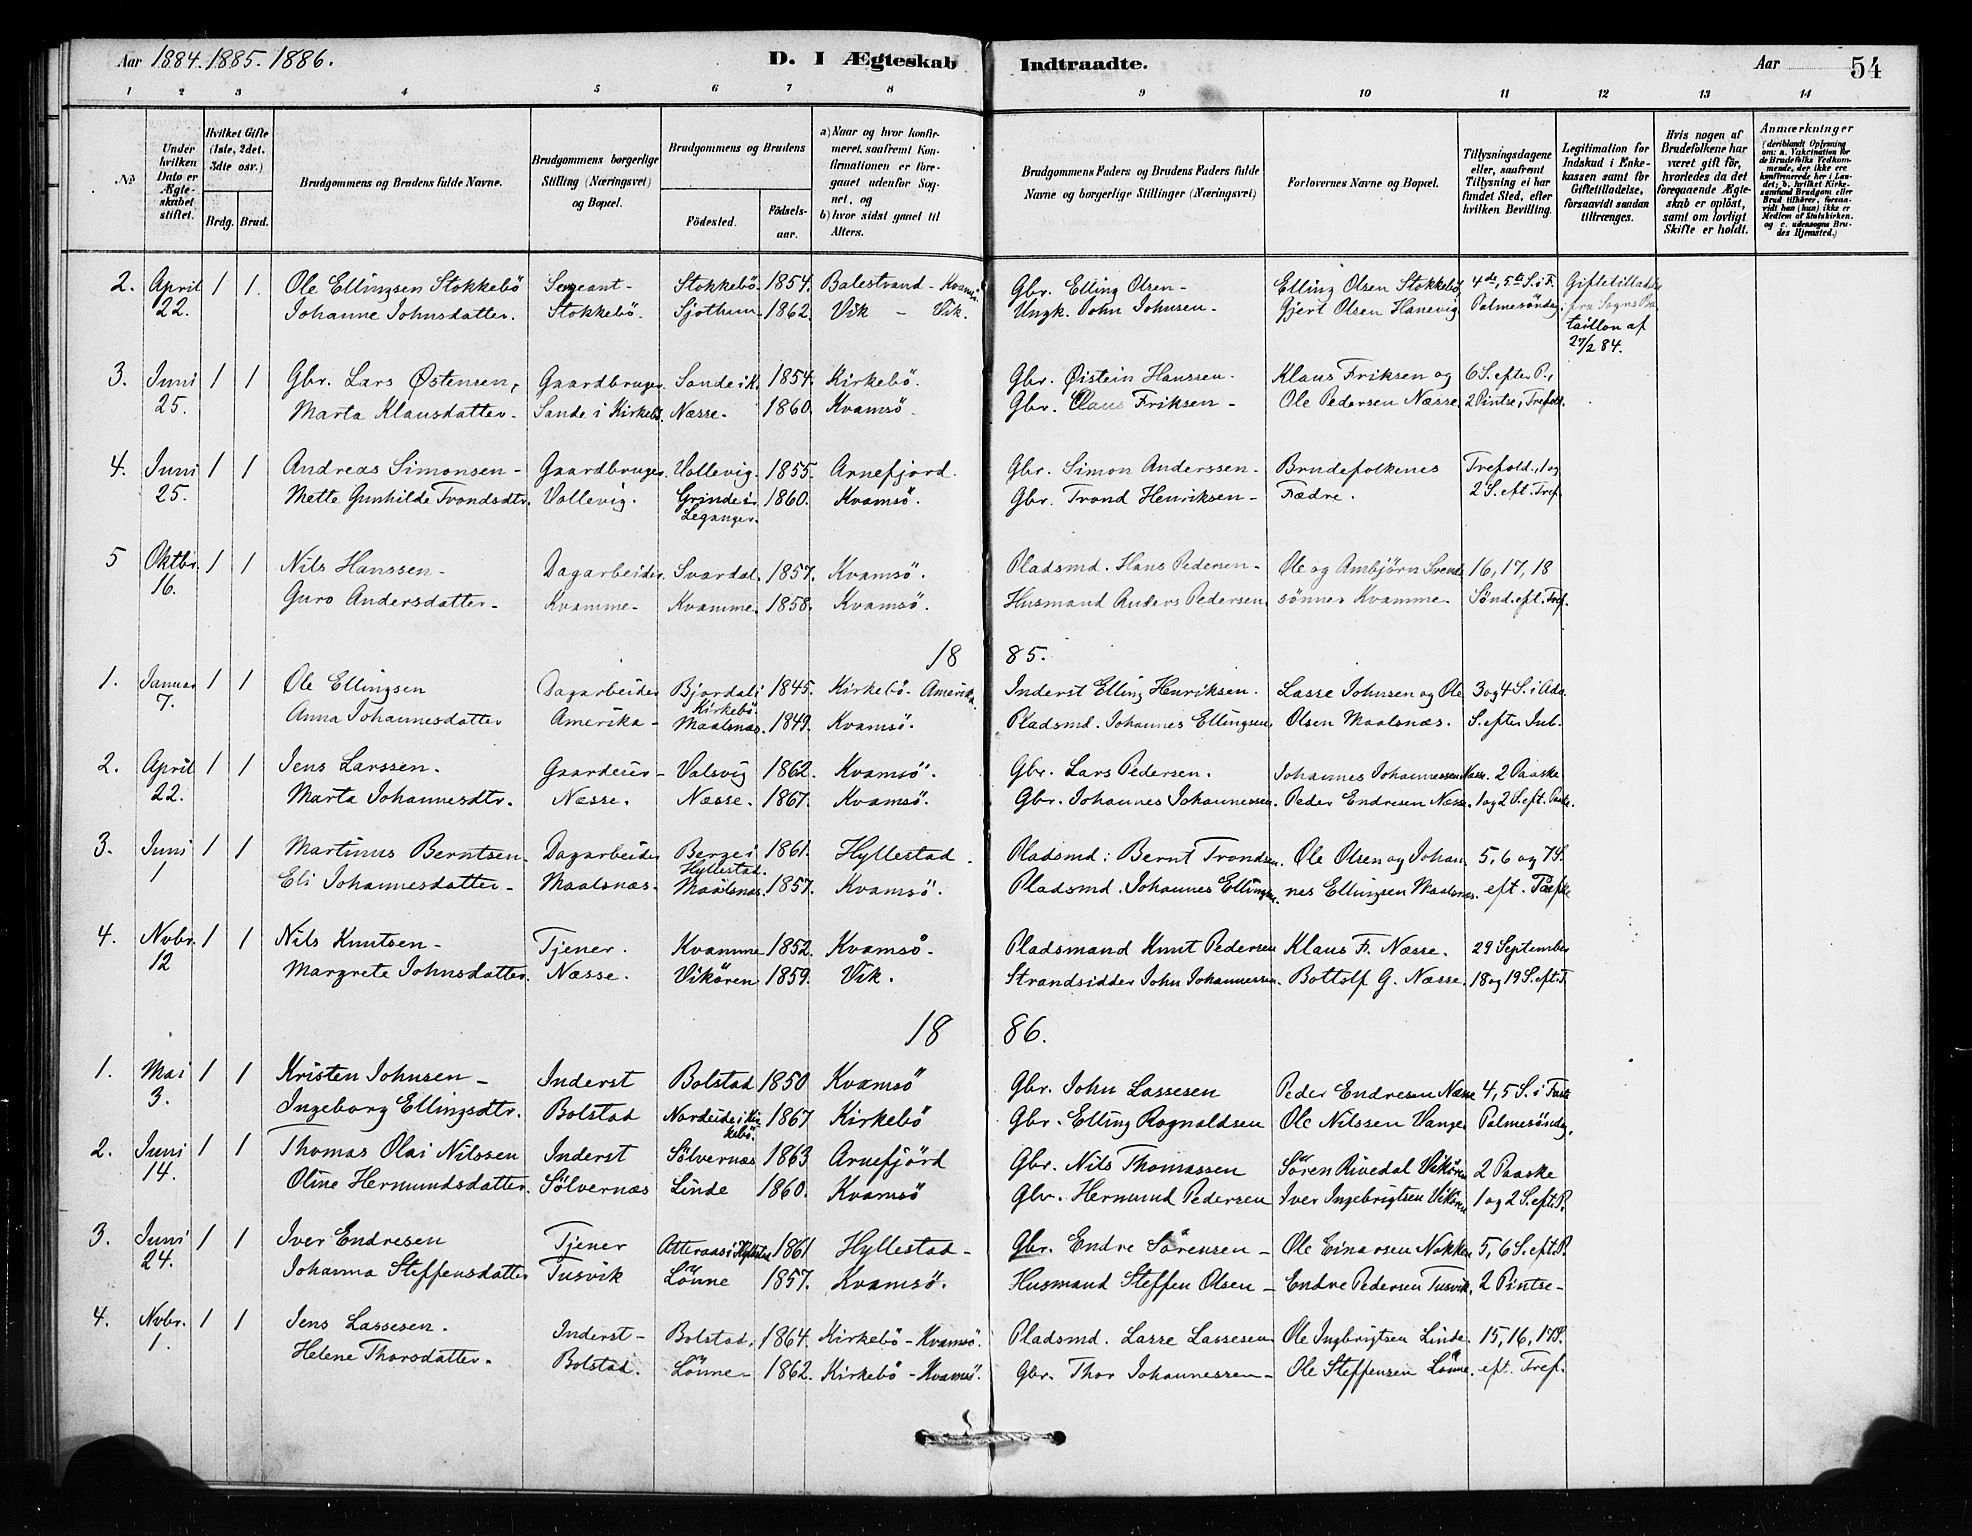 Aar 1884. 1885. 1886.
D. I Ægteskab Indtraadte.
Aar 54
1 2 3 4 5 6 7 8 9 10 11 12 13 14
No.
Under hvilken Dato er Ægteskabet stiftet.
Hvilket Gifte (1ste, 2det, 3dte osv.)
Brdg. Brud.
Brudgommens og Brudens fulde Navne.
Brudgommens borgerlige Stilling (Næringsvei) og Bopæl.
Brudgommens og Brudens
Fødested. Fødselsaar.
a) Naar og hvor konfirmeret, saafremt Konfirmationen er foregaaet udenfor Sognet, og
b) hvor sidst gaaet til Alters.
Brudgommens Faders og Brudens Faders fulde Navne og borgerlige Stillinger (Næringsvei)
Forlovernes Navne og Bopæl.
Tillysningsdagene eller, saafremt Tillysning ei har fundet Sted, efter hvilken Bevilling.
Legitimation for Indskud i Enkekassen samt for Giftetilladelse, forsaavidt saadan tiltrænges.
Hvis nogen af Brudefolkene har været gift før, hvorledes da det foregaaende Ægteskab er opløst, samt om lovligt Skifte er holdt.
Anmærkninger (deriblandt Oplysning om: a. Vakcination for de Brudefolks Vedkommende, der ikke ere konfirmerede her i Landet; b. hvilket Kirkesamfund Brudgom eller Brud tilhører, forsaavidt han (hun) ikke er Medlem af Statskirken, og c. udensogns Brudes Hjemsted.)
2. April 1 1 Ole Ellingsen Stokkebö Sergeant- Stokkebö. 1854. Balestrand - Kvamsö. Gbr. Elling Olsen- Elling Olsen Stokkebö 4de, 5te S. i F. Giftetilladelse
22. Johanne Johnsdatter. Stokkebö. Sjothun- 1862. Vik - Vik. Ungk. John Johnsen- Gjert Olsen Hanevig Palmesöndag. fra Sogns Ba
taillon af
27/2 84.
3. Juni 1 1 Gbr. Lars Østensen, Gaardbruger Sande i K. 1854. Kirkebö. Gbr. Øistein Hanssen- Klaus Friksen og 6 S. efter P.,
25. Marta Klausdatter- Sande i Kirkebö. Næsse. 1860. Kvamsö. Gbr. Claus Friksen- Ole Pedersen Næsse. 2 Pintse, Trefold.
4. Juni 1 1 Andreas Simonsen- Gaardbruger. Vollevig. 1855. Arnefjord. Gbr. Simon Anderssen- Brudefolkenes Trefold., 1 og
25. Mette Gunhilde Trondsdtr. Vollevig. Grinde i 1860. Kvamsö. Gbr. Trond Henriksen- Fædre. 2 S. eft. Tref.
Leganger.
5 Oktbr. 1 1 Nils Hanssen- Dagarbeider. Svardal. 1857. Kvamsö. Pladsmd. Hans Pedersen- Ole og Ambjörn Svend 16, 17, 18
16. Guro Andersdatter- Kvamme- Kvamme. 1858. Kvamsö. Husmand Anders Pedersen. sönner Kvamme. Sönd. eft. Tref.
18 85.
1. Januar 1 1 Ole Ellingsen Dagarbeider Bjordal i 1845. Kirkebö. Amerika. Inderst Elling Henriksen. Lasse Johnsen og Ole 3 og 4 S. i Adv.
Kirkebö.
7. Anna Johannesdatter Amerika- Maalsnæs. 1849. Kvamsö. Pladsmd. Johannes Ellingsen. Olsen Maalsnæs. S. efter Jul.
2. April 1 1 Jens Larssen. Gaardeier- Valsvig 1862. Kvamsö. Gbr. Lars Pedersen. Johannes Johannessen Næsse. 2 Paaske
22. Marta Johannesdtr. Næsse. Næsse. 1867. Kvamsö. Gbr. Johannes Johannessen. Peder Endresen Næsse. 1 og 2 S. eft. Paske.
3. Juni 1 1 Martinus Berntsen. Dagarbeider Berge i 1861. Hyllestad. Pladsmd: Bernt Trondsen. Ole Olsen og Johan 5, 6 og 7 S.
Hyllestad.
1 Eli Johannesdatter- Maalsnæs. Maalsnæs. 1857. Kvamsö. Pladsmd. Johannes Ellingsen. nes Ellingsen Maalsnæs. eft. Paaske
4. Nvbr. 1 1 Nils Knutsen- Tjener. Kvamme 1852. Kvamsö. Pladsmand Knut Pedersen Klaus F. Næsse. 29 September
12 Margrete Johnsdatter. Næsse. Vikören 1859. Vik. Strandsidder John Johannessen. Bottolf G. Næsse. 18 og 19 S. eft. T.
18 86.
1. Mai 1 1 Kristen Johnsen- Inderst Bolstad 1850 Kvamsö Gbr. John Lassesen Peder Endresen Næsse 4, 5 S. i Faste
3. Ingeborg Ellingsdtr. Bolstad Nordeide i Kir 1867 Kirkebö Gbr. Elling Rognaldsen Ole Nilssen Vange. Palmesöndg.
kebö.
2. Juni 1 1 Thomas Olai Nilssen Inderst Sölvernæs 1863 Arnefjörd Gbr. Nils Thomassen Sören Rivedal Vikören 2 Paaske
14. Oline Hermundsdatter. Sölvernæs Linde 1860. Kvamsö Gbr. Hermund Pedersen Iver Ingebrigtsen Vikören 1 og 2 S. eft. P.
3. Juni 1 1 Iver Endresen Tjener Atteraas i Hyllestad 1861 Hyllestad- Gbr. Endre Sörensen- Ole Einarsen Nokken 5, 6 S. eft. P.
24. Johanna Steffensdatter Tusvik Lönne 1857. Kvamsö. Husmand Steffen Olsen- Endre Pedersen Tusvik. 2 Pintse-
4. Nvbr. 1 1 Jens Lassesen. Inderst- Bolstad. 1864. Kirkebö - Kvamsö. Pladsmd. Lasse Lassesen Ole Ingbrigtsen Linde. 15, 16, 17 S.
1. Helene Thorsdatter. Bolstad. Lönne- 1862. Kirkebö - Kvamsö. Gbr. Thor Johannessen- Ole Steffensen Lönne. eft. Tref.